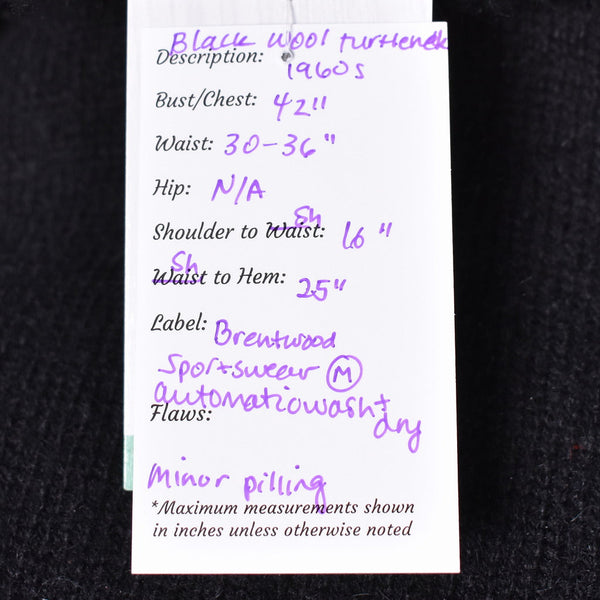 Black wool turtleneck
Description: 1960s
Bust/Chest: 42"
Waist: 30-36"
Hip: N/A
Shoulder to Waist: Sh 16"
Sh
Waist to Hem: 25"
Label: Brentwood
Sportswear M
automatic wash +
Flaws: dry
Minor pilling
*Maximum measurements shown
in inches unless otherwise noted